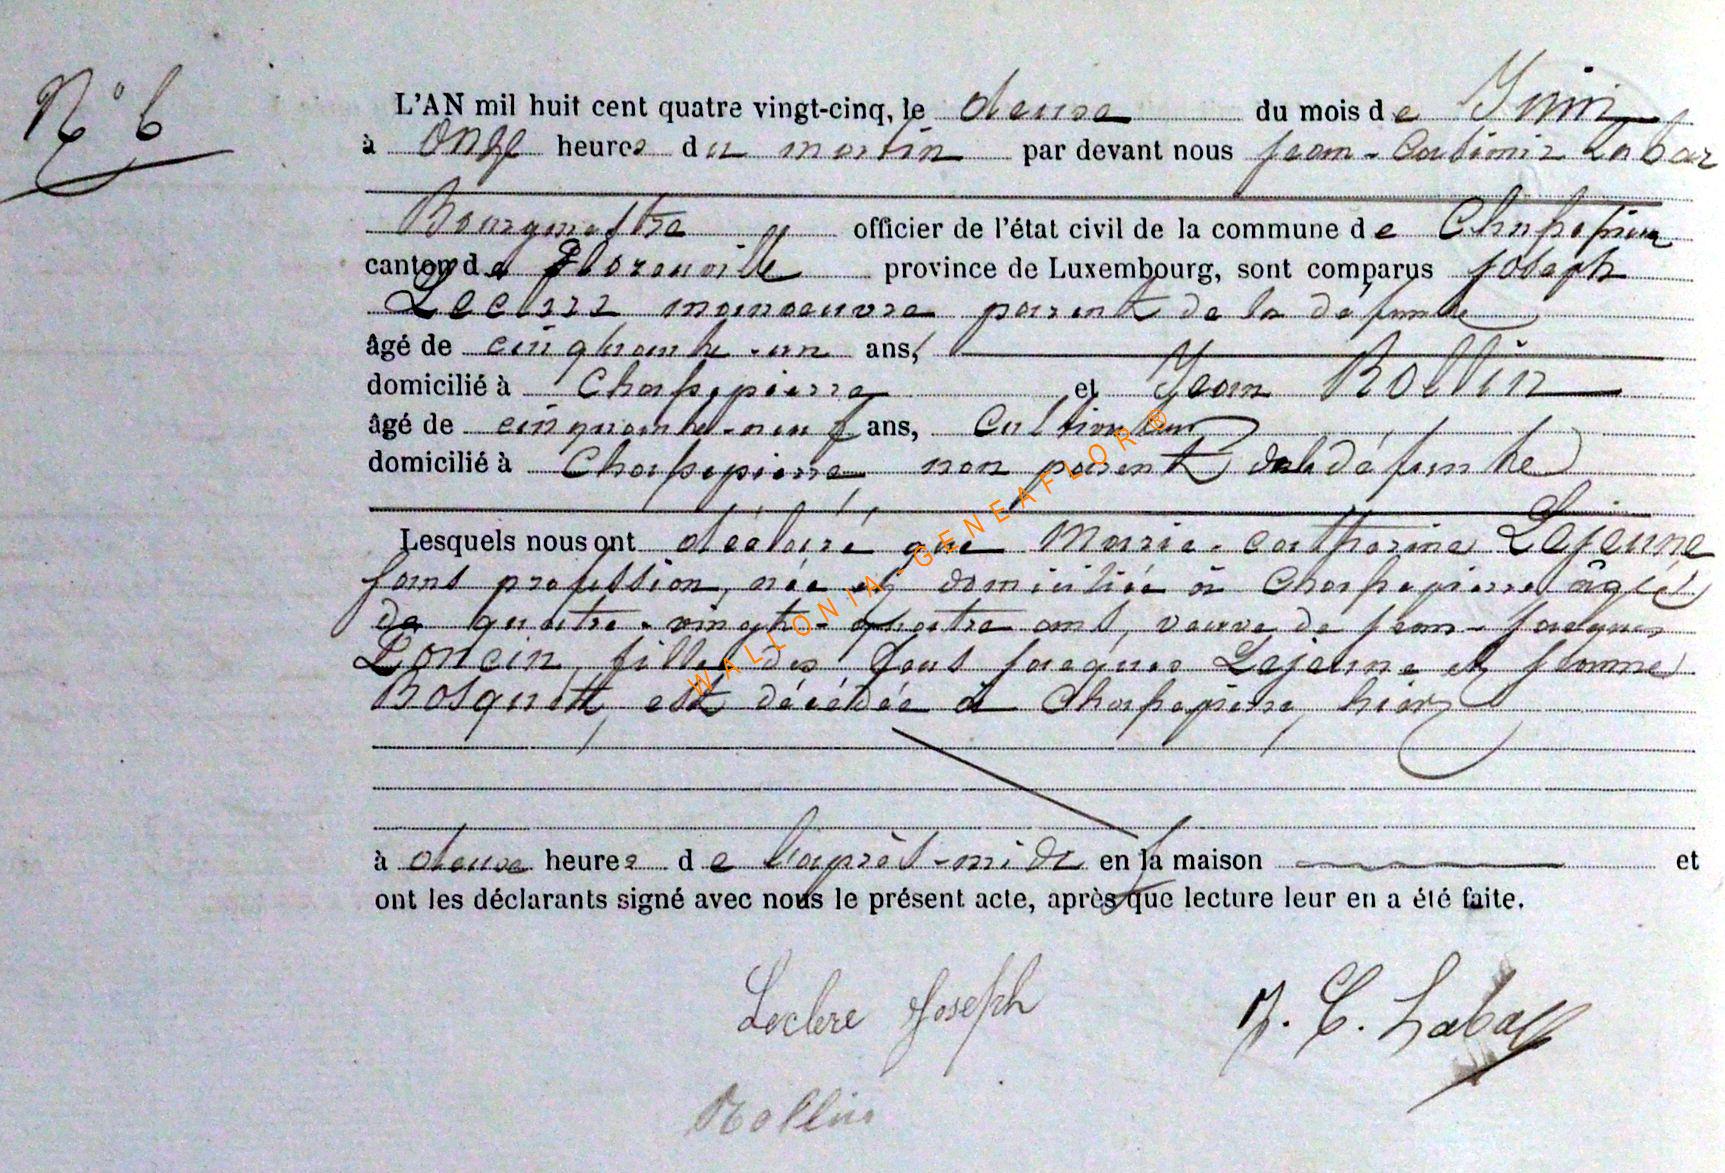 N° 6
L'AN mil huit cent quatre vingt-cinq, le deuxe du mois de Juin
à Onze heures du matin par devant nous Jean-Casimir Labar
Bourgmestre officier de l'état civil de la commune de Chassepierre
canton de Florenville province de Luxembourg, sont comparus Joseph
Leclere manoeuvre parent de la défunte
âgé de cinquante-un ans,
domicilié à Chassepierre et Jean Rollin
âgé de cinquante-neuf ans, Cultivateur
domicilié à Chassepierre non parent de la défunte
Lesquels nous ont déclaré que Marie-catherine Lejeune
sans profession, née et domiciliée à Chassepierre âgée
de quatre-vingt-quatre ans, veuve de Jean-Jacques
Poncin, fille des feus Jacques Lejeune et Jeanne
Bosquett, est décédée à Chassepierre, hier
à deuxe heures de l'après-midi en la maison et
ont les déclarants signé avec nous le présent acte, après que lecture leur en a été faite.
Leclere Joseph J. C. Labar
Rollin
WALLONIA-GENEAFLOR®